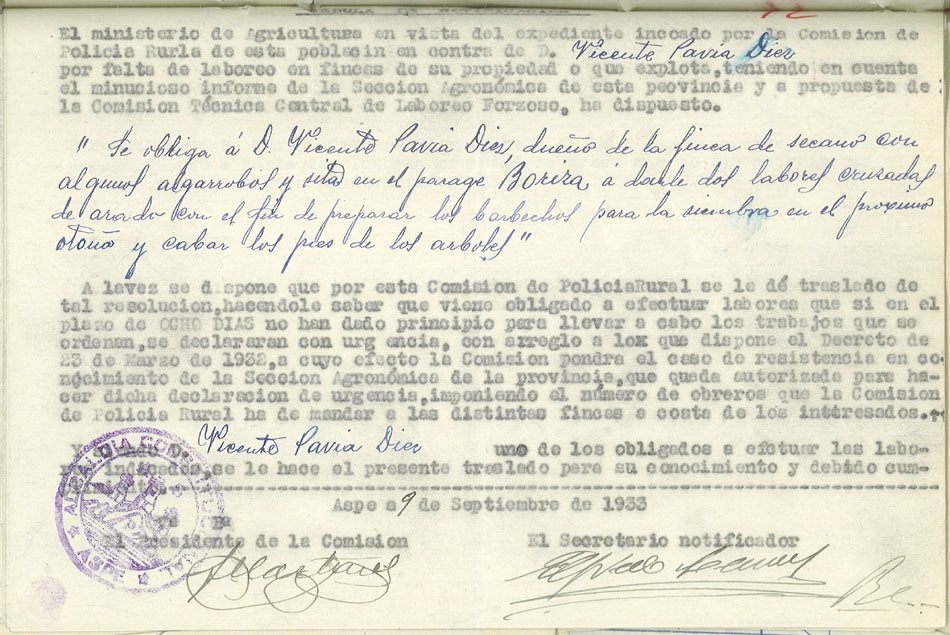 72
CEDULA DE NOTIFICACION
El ministerio de Agricultura en vista del expediente incoado por la Comision de
Policia Rurla de esta poblacin en contra de D. Vicente Pavia Diez
por falta de laboreo en fincas de su propiedad o que explota,teniendo en cuenta
el minucioso informe de la Sección Agronómica de esta peovincia y a propuesta de
la Comision Técnica Central de Laboreo Forzoso, ha dispuesto.
" Se obliga á D. Vicente Pavia Diez, dueño de la finca de secano con
algunos algarrobos y sita en el parage Boriza á darle dos labores cruzadas
de arado con el fin de preparar los barbechos para la siembra en el proximo
otoño y cabar los pies de los arboles "
A lavez se dispone que por esta Comision de PoliciaRural se le dé traslado de
tal resolucion,hacendole saber que viene obligado a efectuar labores que si en el
plazo de OCHO DIAS no han dado principio para llevar a cabo los trabajos que se
ordenan,se declararan con urg encia, con arreglo a lox que dispone el Decreto de
23 de Marzo de 1932,a cuyo efecto la Comision pondra el caso de resistencia en co
nocimiento de la Seccion Agronómica de la provincia,que queda autorizada para ha-
cer dicha declaracion de urgencia,imponiendo el número de obreros que la Comision
de Policia Rural ha de mandar a las distintas fincas a costa de los intèresados.
Y Vicente Pavia Diez uno de los obligados a efctuar las labo-
indicados,se le hace el presente traslado para su conocimiento y debido cum-
Aspe a 9 de Septiembre de 1933
El Presidente de la Comision El Secretario notificador
ALCALDIA CONSTITUCIONAL
★ ASPE ★